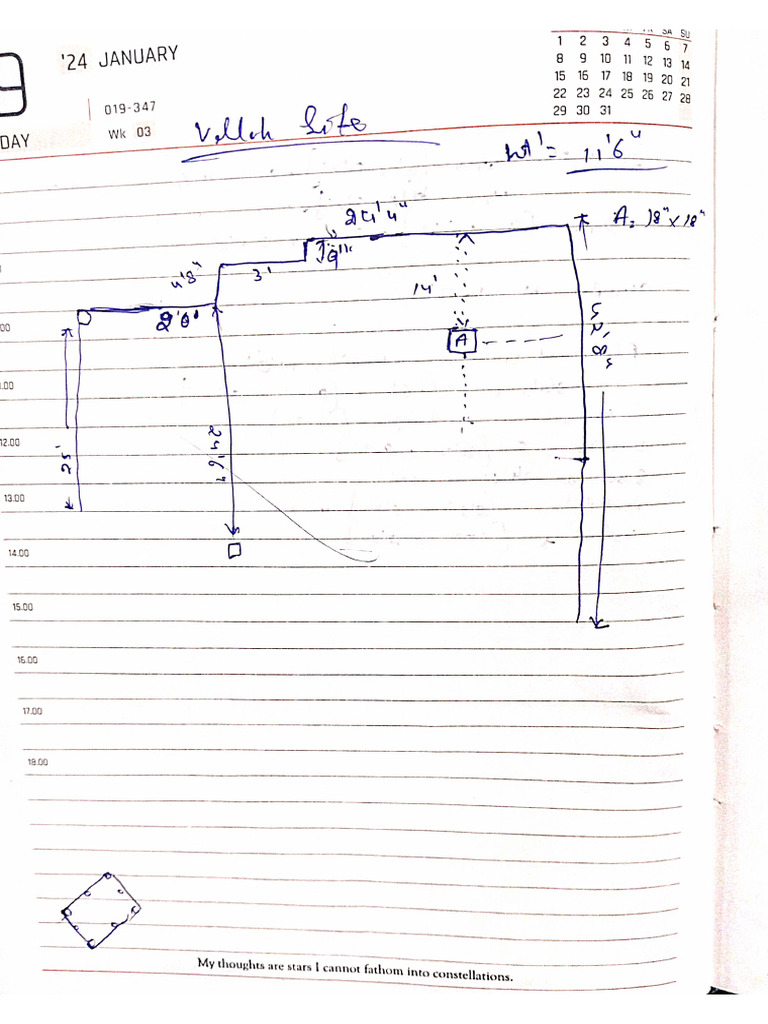 SA SU
'24 JANUARY
1 2 3 4 5 6 7
8 9 10 11 12 13 14
15 16 17 18 19 20 21
22 23 24 25 26 27 28
29 30 31
019-347
DAY
Wk 03
Site
ht' = 11'6"
24'4"
A = 18" x 18"
9"
4'8"
3'
14'
A
25'
24'6"
12.00
13.00
14.00
15.00
16.00
17.00
18.00
My thoughts are stars I cannot fathom into constellations.